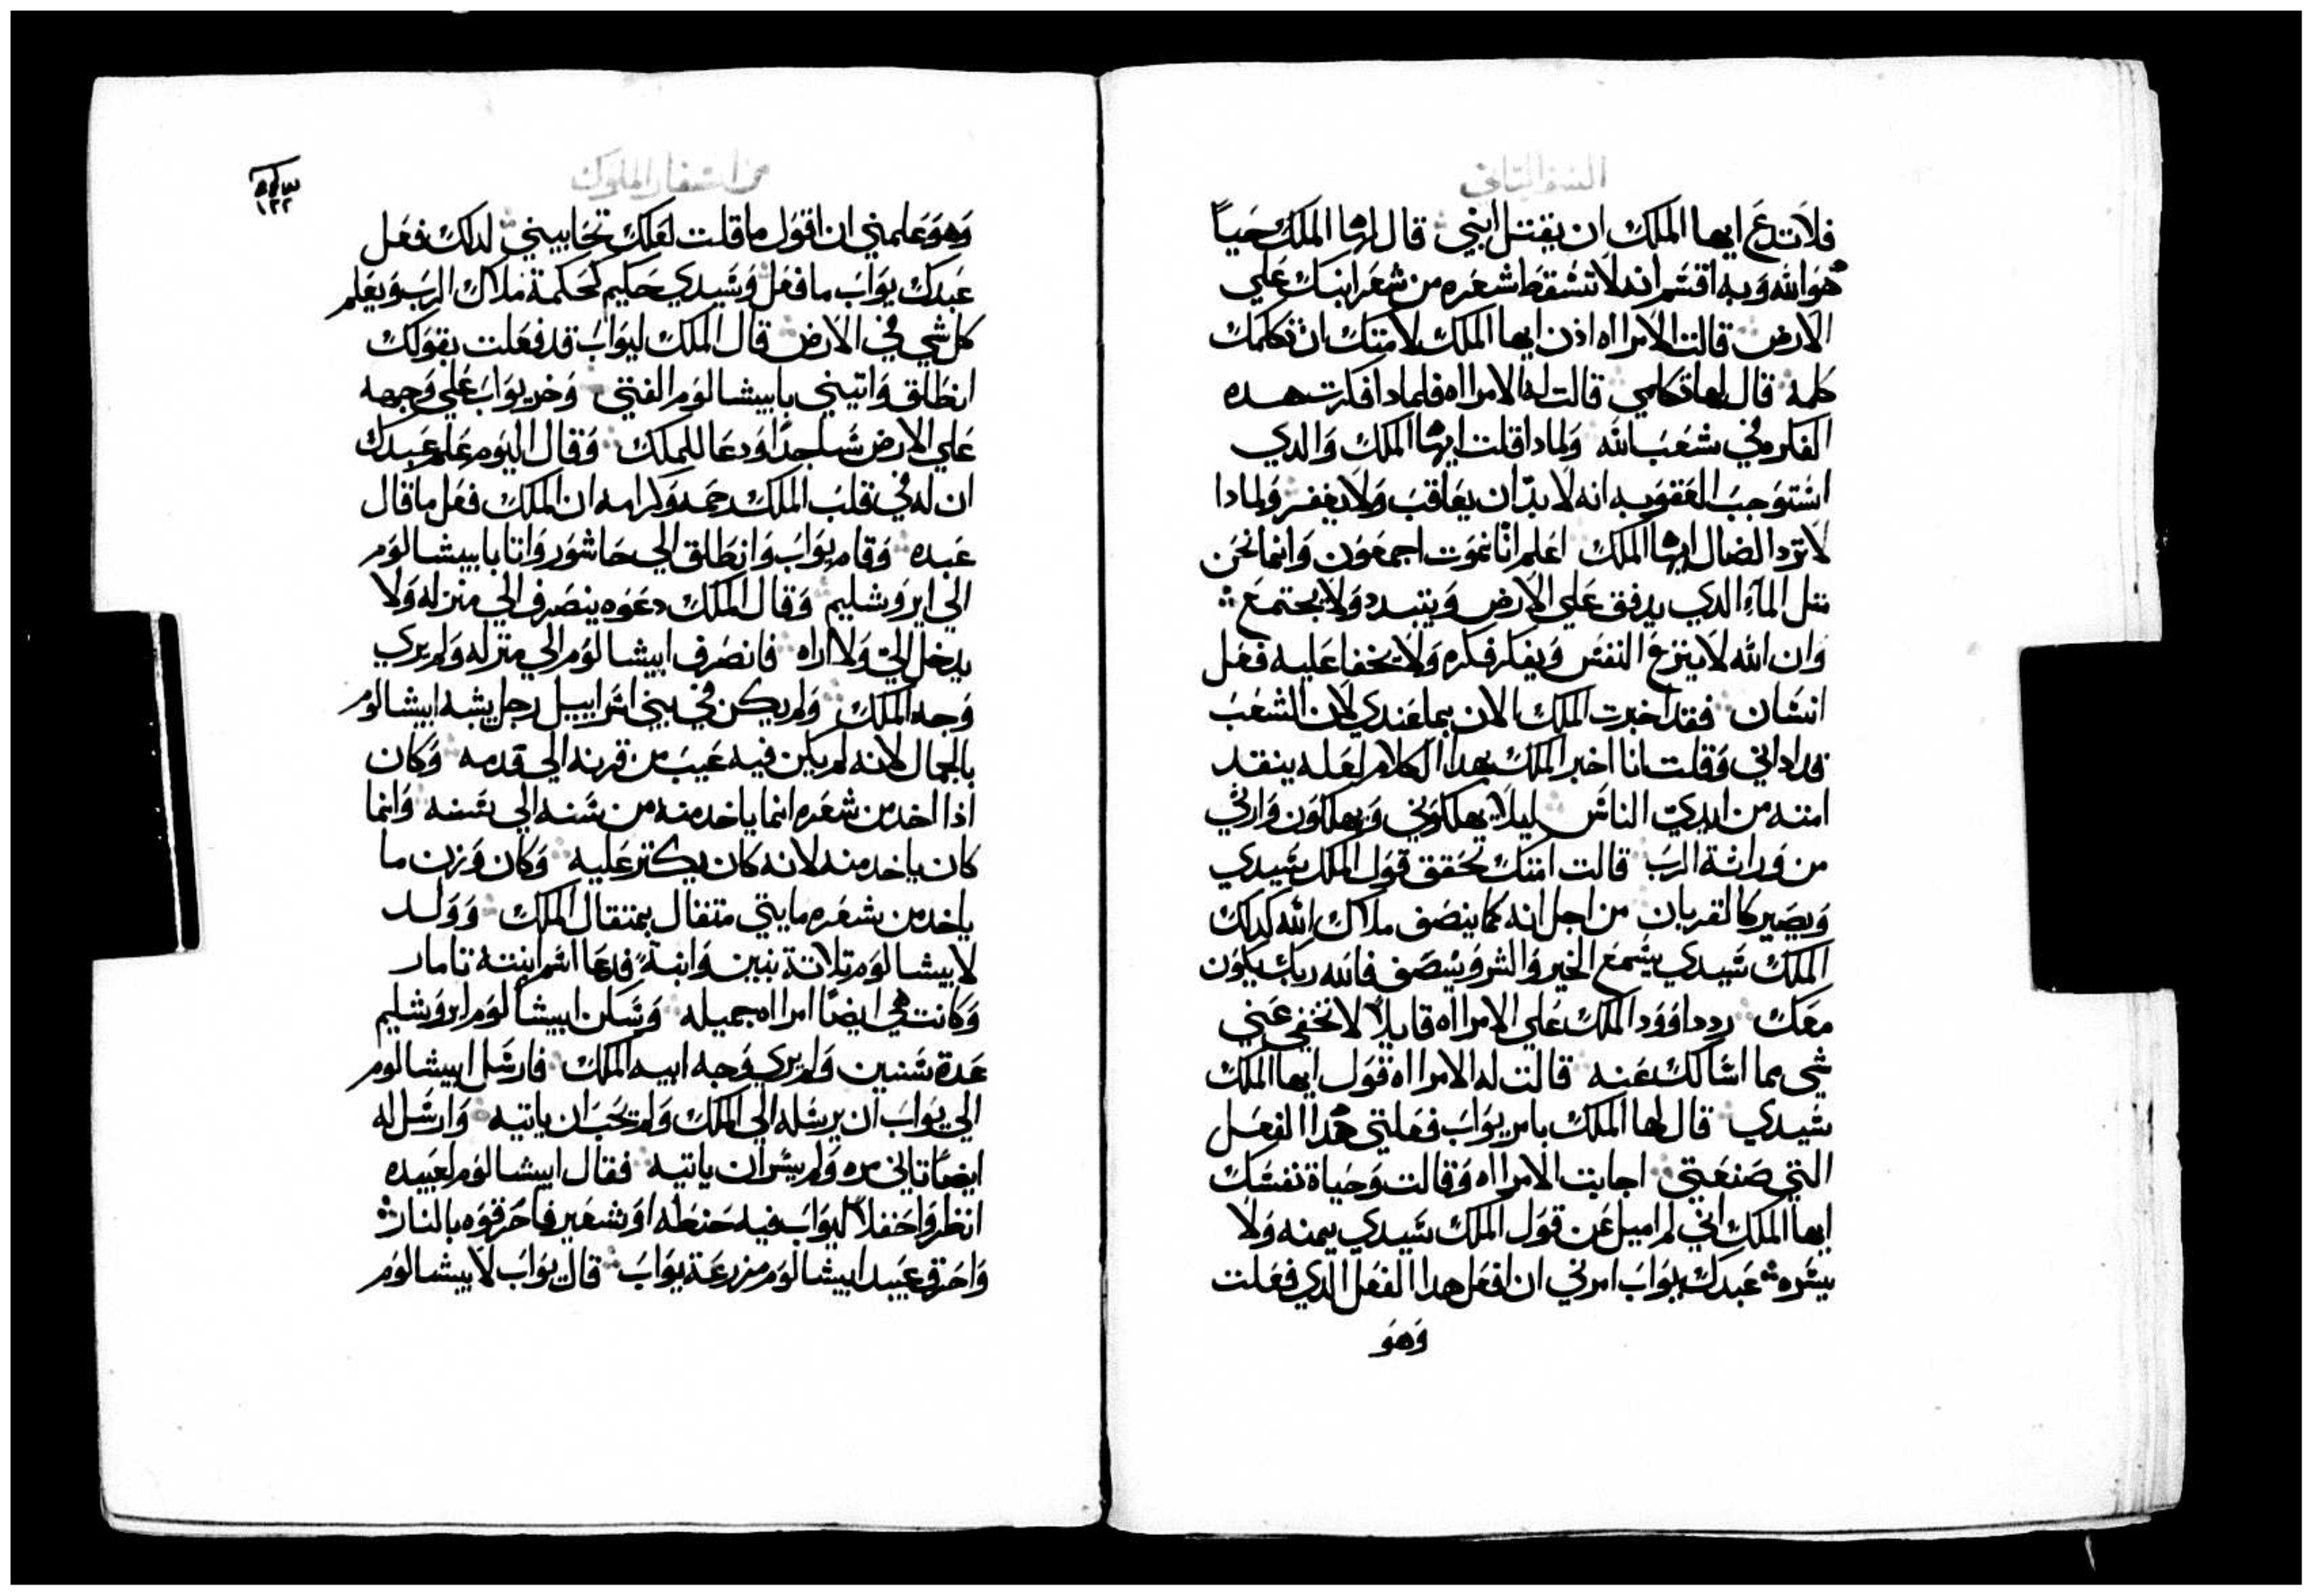 السفر التاني
فلا تدع ايها الملك ان يقتل ابني قال لها الملك حيا
هو الله وبه اقسم انه لا تسقط شعره من شعر ابنك علي
الارض قالت الامراه اذن ايها الملك لامتك ان تكلمك
كلمه قال لها تكلمي قالت له الامراه فلمادا فكرت هده
الفكره في شعب الله ولمادا قلت ايها الملك والدي
استوجب العقوبه انه لا بد ان يعاقب ولا يغفر ولمادا
لا ترد الضال ايها الملك اعلم انا نموت اجمعون وانما نحن
متل المآء الدي يدفق علي الارض ويتبدد ولا يجتمع
وان الله لا ينزع النفس ويفكر فكره ولا يخفا عليه فعل
انسان فقد اخبرت الملك الان بما عندي لان الشعب
قد اداني وقلت انا اخبر الملك بهدا الكلام لعله ينقد
امته من ايدي الناس ليلا يهلكوني ويهلكون وارثي
من وراثة الرب قالت امتك تحقق قول الملك سيدي
ويصير كالقربان من اجل انه كما ينصف ملاك الله كدلك
الملك سيدي يسمع الخير والشر وينصف فالله ربك يكون
معك رد داوود الملك علي الامراه قايلاً لا تخفي عني
شي مما اسالك عنه قالت له الامراه قول ايها الملك
سيدي قال لها الملك بامر يواب فعلتي هدا الفعل
التي صنعتي اجابت الامراه وقالت وحياة نفسك
ايها الملك اني لم اميل عن قول الملك سيدي يمنه ولا
يسره عبدك يواب امرني ان افعل هدا الفعل الدي فعلت
وهو
من اسفار الملوك
١٢٢
وهو علمني ان اقول ما قلت لعلك تحابيني لدلك فعل
عبدك يواب ما فعل وسيدي حكيم كحكمة ملاك الرب ويعلم
كل شي في الارض قال الملك ليواب قد فعلت بقولك
انطلق واتيني بابيشالوم الفتي وخر يواب علي وجهه
علي الارض ساجداً ودعا للملك وقال اليوم علم عبدك
ان له في قلب الملك رحمه وكرامه ان الملك فعل ما قال
عبده وقام يواب وانطلق الي حاشور واتا بابيشالوم
الي ايروشليم وقال الملك دعوه ينصرف الي منزله ولا
يدخل الي ولا اراه فانصرف ابيشالوم الي منزله ولم يري
وجه الملك ولم يكن في بني اسراييل رجل يشبه ابيشالوم
بالجمال لانه لم يكن فيه عيب من قرنه الي قدمه وكان
اذا اخد من شعره انما ياخد منه من سنه الي سنه وانما
كان ياخد منه لانه كان يكتر عليه وكان وزن ما
ياخد من شعره مايتي متقال بمتقال الملك وولد
لابيشالوم تلاتة بنين وابنة فدعا اسم ابنته تامار
وكانت هي ايضاً امراه جميله وسكن ابيشالوم ايروشليم
عدة سنين ولم يري وجه ابيه الملك فارسل ابيشالوم
الي يواب ان يرسله الي الملك ولم يحب ان ياتيه وارسل له
ايضاً تاني مره ولم يسر ان ياتيه فقال ابيشالوم لعبيده
انظروا حقلاً ليواب فيه حنطه او شعير فاحرقوه بالنار
واحرق عبيد ابيشالوم مزرعة يواب قال يواب لابيشالوم